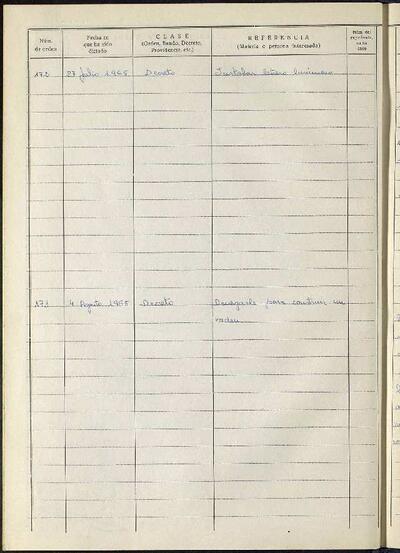 Núm. de orden
Fecha en que ha sido dictado
CLASE
(Orden, Bando, Decreto, Providencia, etc.)
REFERENCIA
(Materia o persona interesada)
Núm. del expediente,
27 Julio 1965 Decreto Instalar letrero luminoso
173 4 Agosto 1965 Decreto para construir un
vado